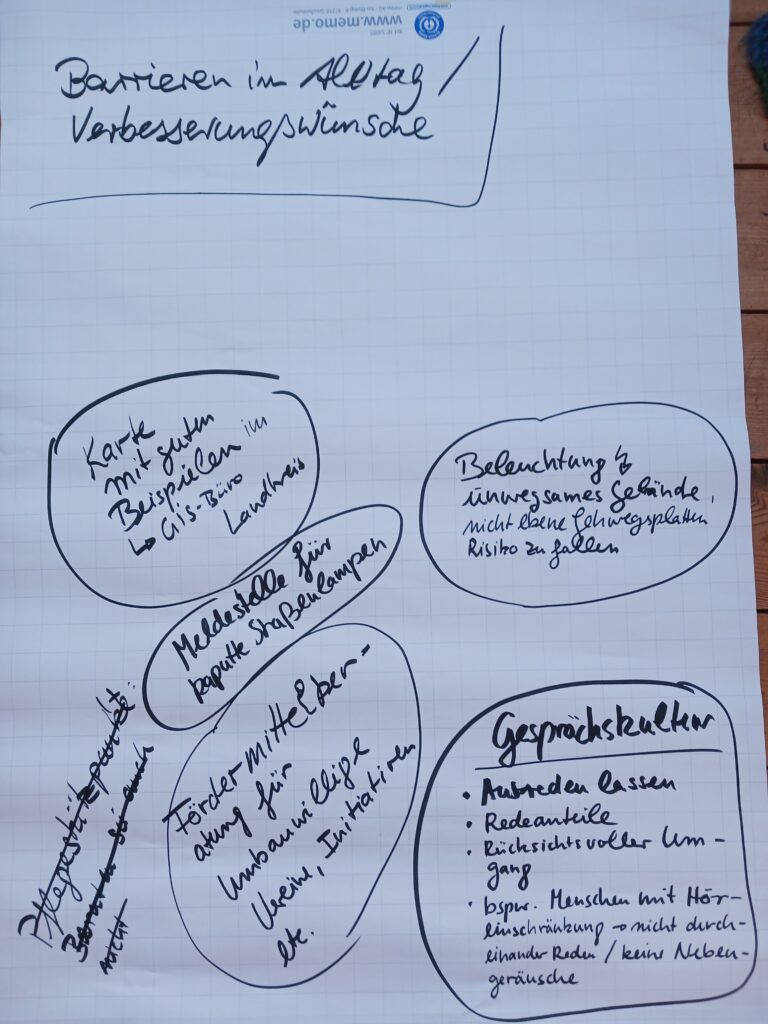 www.memo.de
Barrieren im Alltag /
Verbesserungswünsche
Karte
mit guten
Beispielen im
↳ GIS-Büro Landkreis
Meldestelle für
kaputte Straßenlampen
Fördermittelber-
atung für
Umbauwillige
Vereine, Initiativen
etc.
Beleuchtung
unwegsames Gelände,
nicht ebene Gehwegsplatten
Risiko zu fallen
Gesprächskultur
• Ausreden lassen
• Redeanteile
• Rücksichtsvoller Um-
gang
• bspw. Menschen mit Hör-
einschränkung → nicht durch-
einander Reden / keine Neben-
geräusche